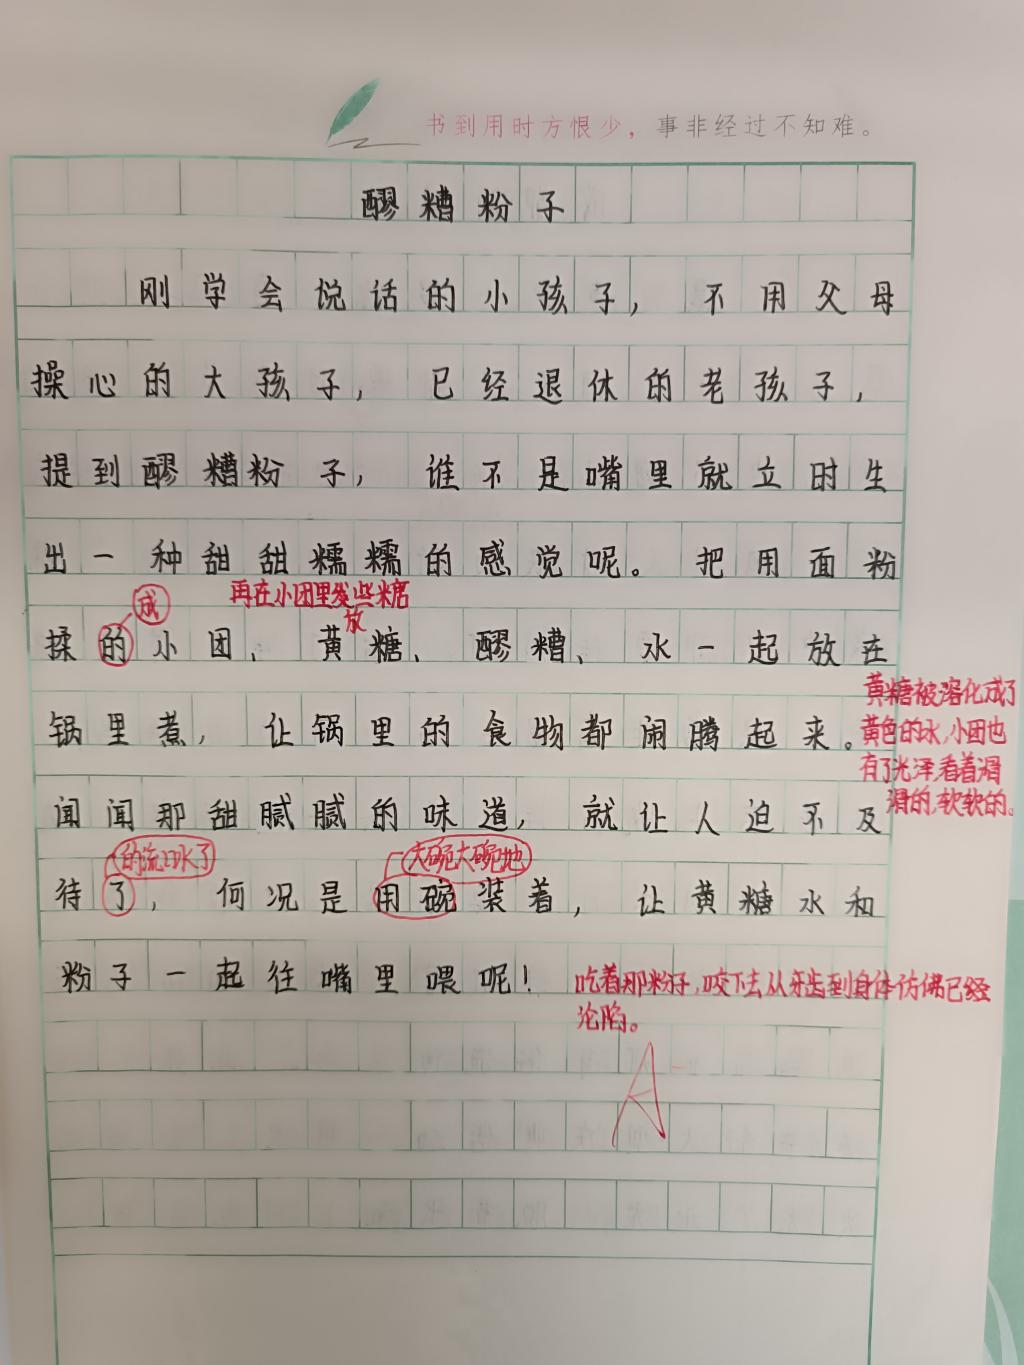 书到用时方恨少，事非经过不知难。
醪糟粉子
刚学会说话的小孩子，不用父母
操心的大孩子，已经退休的老孩子，
提到醪糟粉子，谁不是嘴里就立时生
出一种甜甜糯糯的感觉呢。把用面粉
成
再在小团里发些糖
放
揉的小团、黄糖、醪糟、水一起放在
黄糖被溶化成了
锅里煮，让锅里的食物都闹腾起来。
黄色的水，小团也
有了光泽，看着滑
滑的，软软的。
闻闻那甜腻腻的味道，就让人迫不及
的流口水了
大碗大碗地
待了，何况是用碗装着，让黄糖水和
粉子一起往嘴里喂呢！
吃着那粉子，咬下去从牙齿到身体仿佛已经
沦陷。
A-